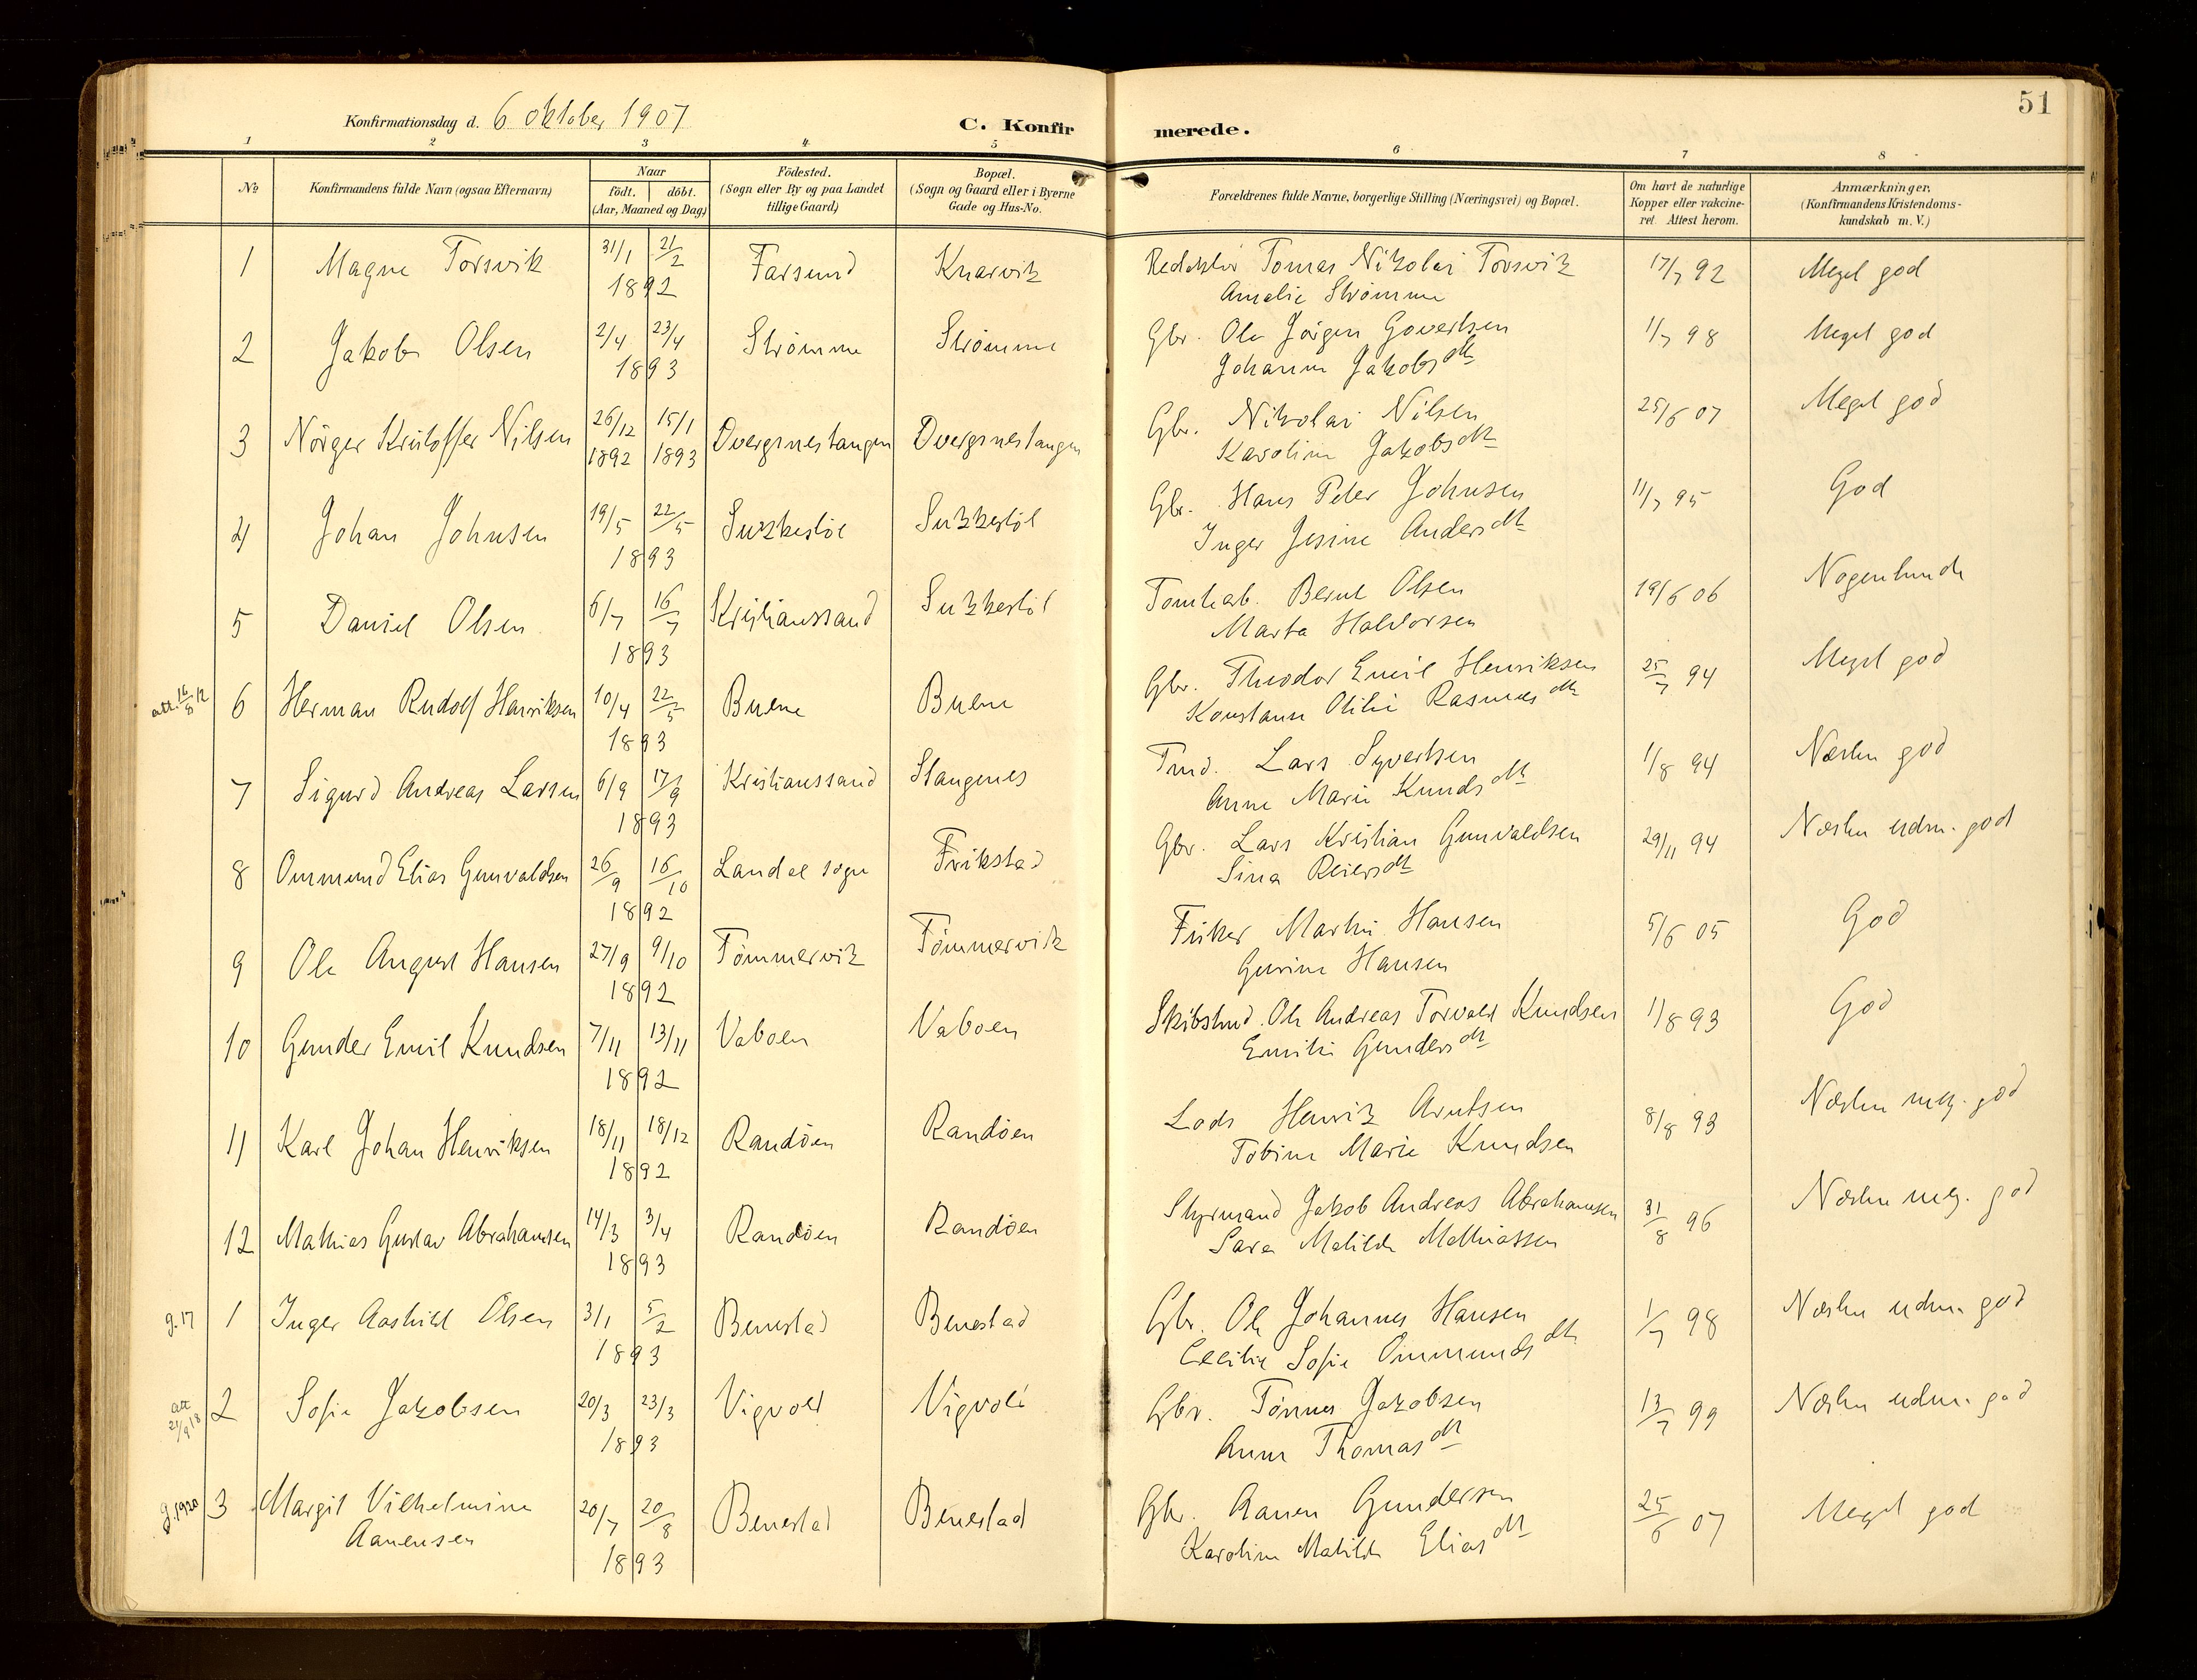 51
Konfirmationsdag d. 6 Oktober 1907
C. Konfirmerede.
1 2 3 4 5 6 7 8
No
Konfirmandens fulde Navn (ogsaa Efternavn)
Naar
födt. döbt.
(Aar, Maaned og Dag)
Födested.
(Sogn eller By og paa Landet
tillige Gaard)
Bopæl.
(Sogn og Gaard eller i Byerne
Gade og Hus-No.
Forældrenes fulde Navne, borgerlige Stilling (Næringsvei) og Bopæl.
Om havt de naturlige
Kopper eller vakcine-
ret. Attest herom.
Anmærkninger.
(Konfirmandens Kristendoms-
kundskab m. V.)
1 Magne Torsvik 31/1 21/2 Farsund Knarvik Redaktør Tomas Nikolai Torsvik 17/7 92 Meget god
1892 Amalie Strømme
2 Jakob Olsen 2/4 23/4 Strømme Strømme Gbr. Ole Jörgen Govertsen 1/7 98 Meget god
1893 Johanne Jakobsdtr
3 Nörger Kristoffer Nilsen 26/12 15/1 Dvergsnestangen Dvergsnestangen Gbr. Nikolai Nilsen 25/6 07 Meget god
1892 1893 Karoline Jakobsdtr
4 Johan Johnsen 19/5 22/5 Sukkestøl Sukkestøl Gbr. Hans Peter Johnsen 11/7 95 God
1893 Inger Jesine Andersdtr
5 Daniel Olsen 6/7 16/7 Kristianssand Sukkestøl Tomtearb. Bernt Olsen 19/6 06 Nogenlunde
1893 Marta Halvorsen
att. 16/8 12 6 Herman Rudolf Henriksen 10/4 22/5 Buene Buene Gbr. Theodor Emil Henriksen 25/7 94 Meget god
1893 Konstanse Otilie Rasmusdtr
7 Sigurd Andreas Larsen 6/9 17/9 Kristianssand Stangenes Tmd. Lars Syvertsen 1/8 94 Næsten god
1893 Anne Marie Knudsdtr
8 Ommund Elias Gunvaldsen 26/9 16/10 Landel sogn Frikstad Gbr. Lars Kristian Gunvaldsen 29/11 94 Næsten udm. god
1892 Sina Reiersdtr
9 Ole August Hansen 27/9 9/10 Tömmervik Tömmervik Fisker Martin Hansen 5/6 05 God
1892 Gurine Hansen
10 Gunder Emil Knudsen 7/11 13/11 Vaboen Vaboen Skibstmd. Ole Andreas Torvald Knudsen 1/8 93 God
1892 Emilie Gundersdtr
11 Karl Johan Henriksen 18/11 18/12 Randöen Randöen Lods Henrik Arntsen 8/8 93 Næsten meg. god
1892 Tobine Marie Knudsen
12 Mathias Gustav Abrahamsen 14/3 3/4 Randöen Randöen Styrmand Jakob Andreas Abrahamsen 31/8 96 Næsten meg. god
1893 Sara Matilde Mathiassen
g. 17 1 Inger Aashild Olsen 3/1 5/2 Benestad Benestad Gbr. Ole Johannes Hansen 1/7 98 Næsten udm. god
1893 Cecilie Sofie Ommundsdtr
att 21/9 18 2 Sofie Jakobsen 20/3 23/3 Vigvold Vigvold Gbr. Tönnes Jakobsen 13/7 99 Næsten udm. god
1893 Anne Thomasdtr
g. 1920 3 Margit Vilhelmine 20/7 20/8 Benestad Benestad Gbr. Aanen Gundersen 25/6 07 Meget god
Aanensen 1893 Karoline Matilde Eliasdtr